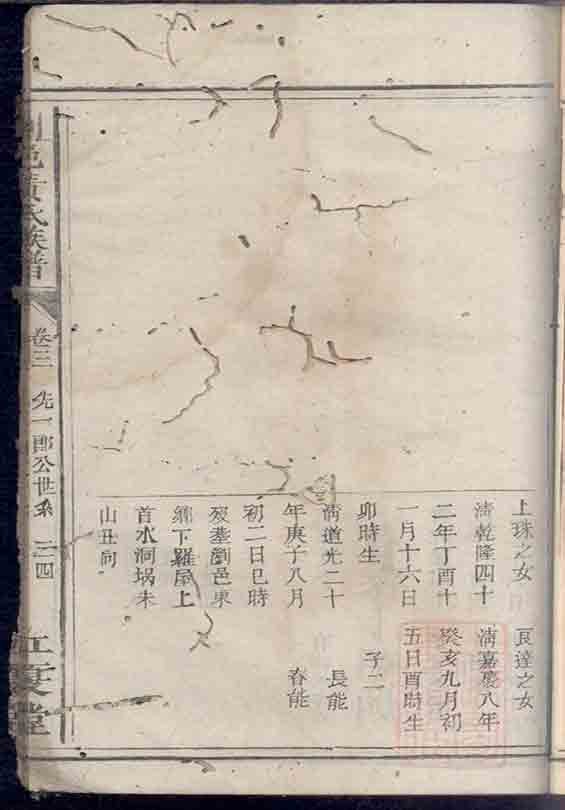 上珠之女 良達之女
清乾隆四十 清嘉慶八年
二年丁酉十 癸亥九月初
一月十六日 五日酉時生
卯時生 子二
清道光二十 長能
年庚子八月 春能
初二日巳時
歿墓瀏邑東
鄉下羅屋上
首水洞堝未
山丑向
邑黃氏族譜 卷三 先一郎公世系 二四 江夏堂